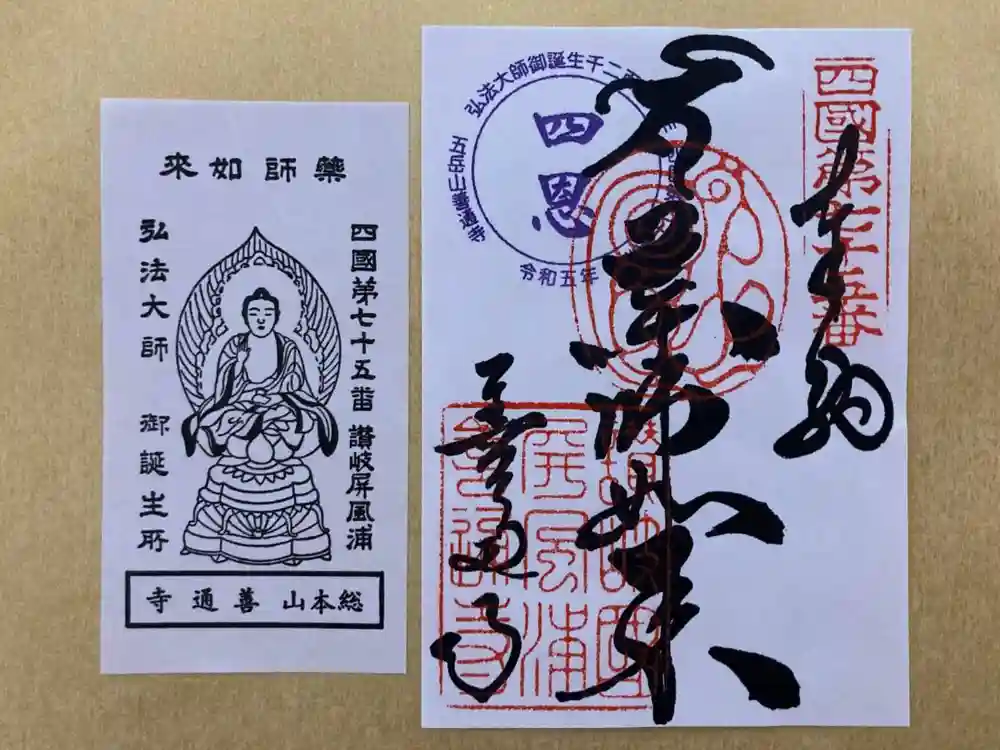 藥師如來
四國第七十五番 讃岐屏風浦
弘法大師 御誕生所
総本山 善通寺
四國第七十五番
奉納
弘法大師御誕生千二百
四恩
五岳山善通寺
令和五年
薬師如来
善通寺
屏風浦
善通寺